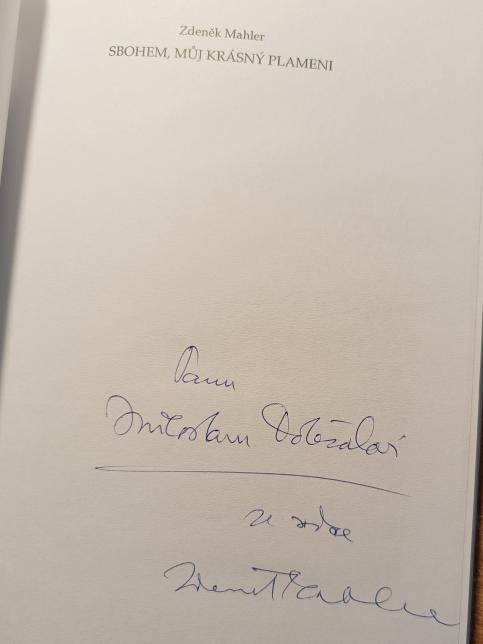 Zdeněk Mahler
SBOHEM, MŮJ KRÁSNÝ PLAMENI
Panu
Miroslavu Doležalovi
ze srdce
Zdeněk Mahler